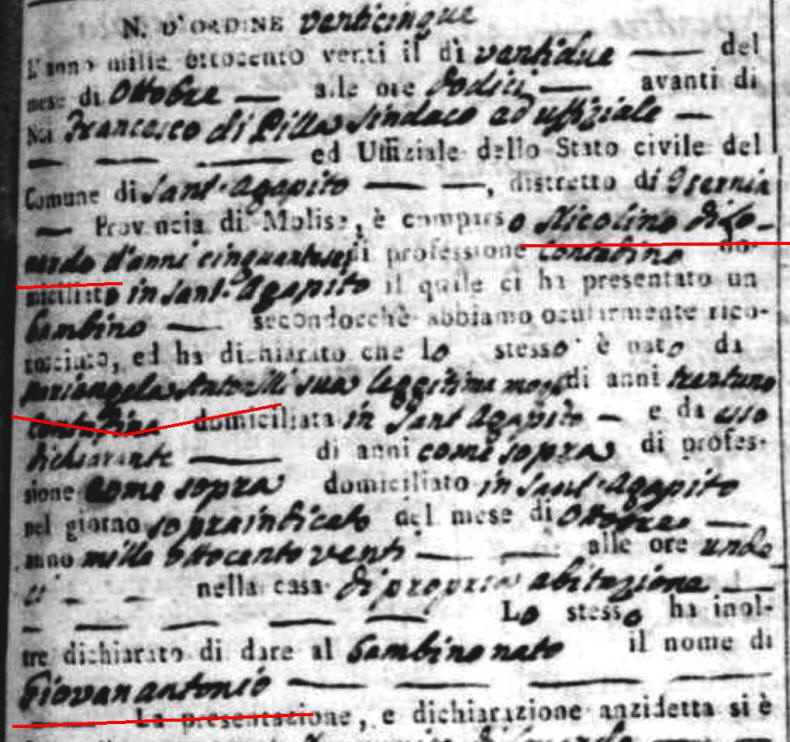 N. D'ORDINE venticinque
L'anno mille ottocento venti il dì ventidue del
mese di Ottobre alle ore dodici avanti di
Noi Francesco di Pilla Sindaco ad uffiziale
ed Uffiziale dello Stato civile del
Comune di Sant'Agapito, distretto di Isernia
Provincia di Molise, è comparso Nicolino di Lo-
nardo d'anni cinquantasei di professione Contadino do-
miciliato in Sant'Agapito il quale ci ha presentato un
bambino secondocchè abbiamo ocularmente rico-
nosciuto, ed ha dichiarato che lo stesso è nato da
Mariangela Antonilli sua legittima moglie di anni trentuno
Contadina domiciliata in Sant Agapito e da esso
dichiarante di anni come sopra di profes-
sione come sopra domiciliato in Sant'Agapito
nel giorno sopraindicato del mese di Ottobre
anno mille ottocento venti alle ore unde
ci nella casa di propria abitazione
Lo stesso ha inol-
tre dichiarato di dare al bambino nato il nome di
Giovanantonio
La presentazione, e dichiarazione anzidetta si è